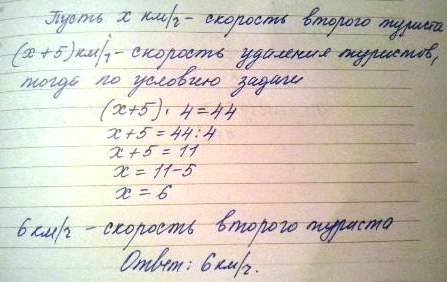 Пусть x км/ч – скорость второго туриста
(x+5) км/ч – скорость удаления туристов,
тогда по условию задачи
(x+5) · 4 = 44
x + 5 = 44 : 4
x + 5 = 11
x = 11 – 5
x = 6
6 км/ч – скорость второго туриста
Ответ: 6 км/ч.